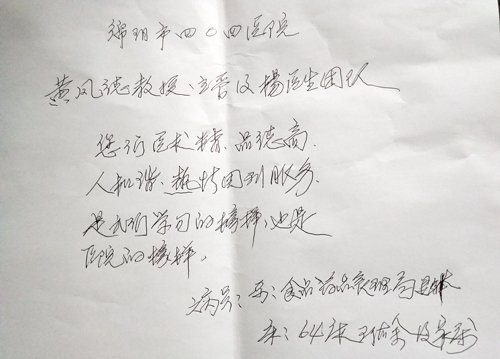 绵阳市四〇四医院
黄凤德教授、主管及杨医生团队
您们医术精、品德高、
人和谐、热情周到服务、
是我们学习的榜样、也是
医院的榜样。
病员:东:食品药品管理局退休
床:64床 王佐余 及家属